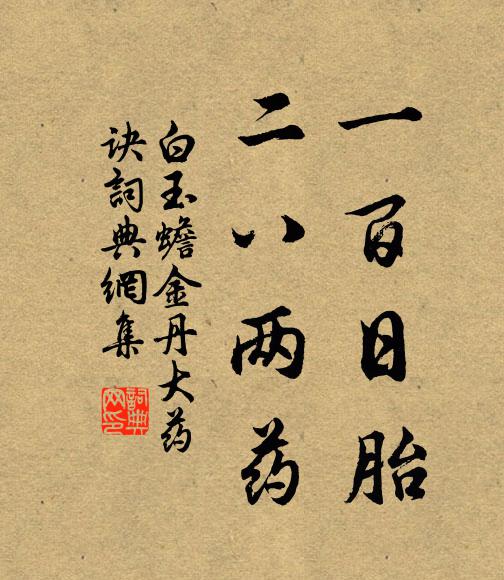 一百日胎
二八两药
白玉蟾金丹大药
诀詞典網集
詞典
网印